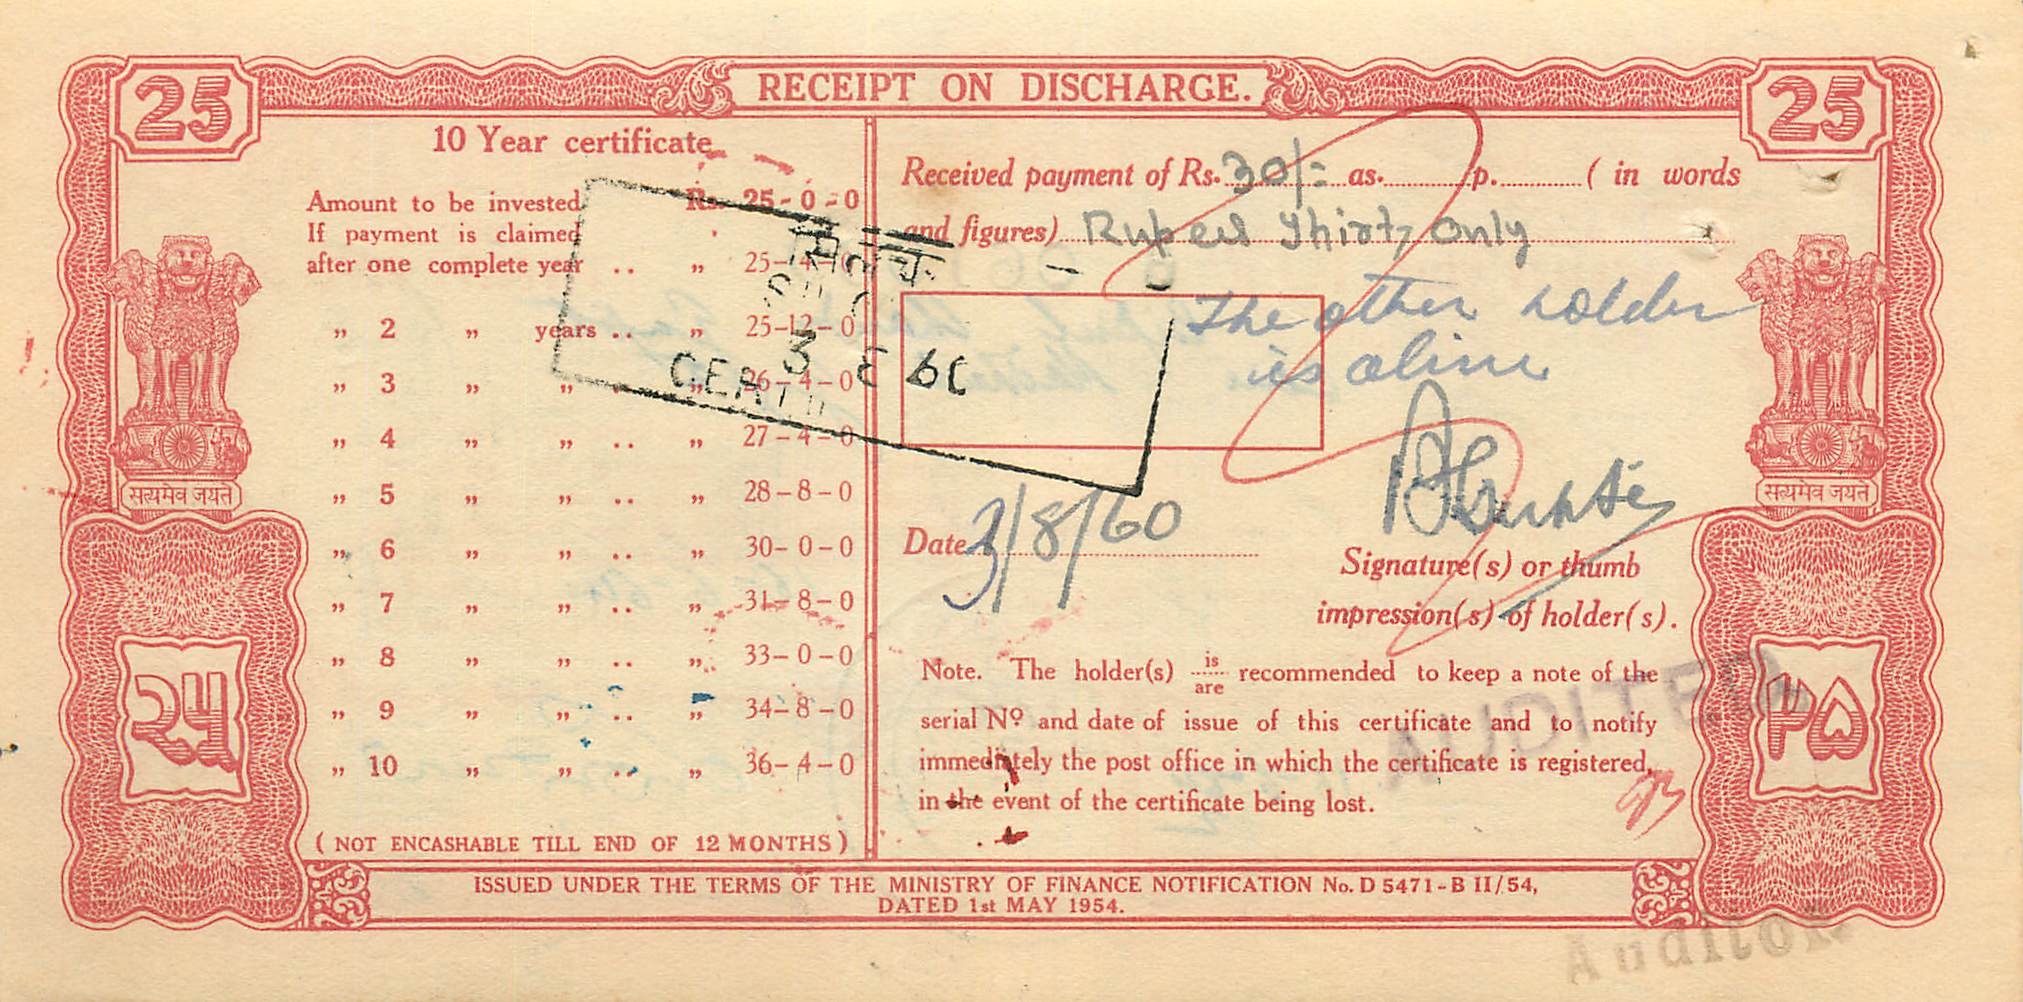 25 RECEIPT ON DISCHARGE. 25
10 Year certificate
Amount to be invested Rs. 25-0-0
If payment is claimed
after one complete year .. „ 25-4-0
„ 2 „ years .. „ 25-12-0
„ 3 „ „ .. „ 26-4-0
„ 4 „ „ .. „ 27-4-0
„ 5 „ „ .. „ 28-8-0
„ 6 „ „ .. „ 30-0-0
„ 7 „ „ .. „ 31-8-0
„ 8 „ „ .. „ 33-0-0
„ 9 „ „ .. „ 34-8-0
„ 10 „ „ .. „ 36-4-0
( NOT ENCASHABLE TILL END OF 12 MONTHS )
Received payment of Rs. 30/- as. p. ( in words
and figures) Rupees Thirty Only
The other holder
is alive
Date 3/8/60
Signature(s) or thumb
impression(s) of holder(s).
Note. The holder(s) is/are recommended to keep a note of the
serial Nº and date of issue of this certificate and to notify
immediately the post office in which the certificate is registered,
in the event of the certificate being lost.
AUDITED
सत्यमेव जयते
सत्यमेव जयते
२५
۲۵
ISSUED UNDER THE TERMS OF THE MINISTRY OF FINANCE NOTIFICATION No. D 5471-B II/54,
DATED 1st MAY 1954.
Auditor